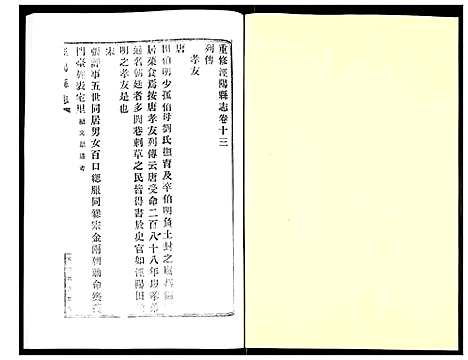 重修涇陽縣志卷十三
列傳
孝友
唐
田伯明少孤伯母劉氏撫育及卒伯明負土封之廬
居菜食爲按唐孝友列傳云唐受命二百八十八年以孝
通名朝廷者多閭巷刺草之民皆得書於史官如涇陽田伯
明之孝友是也
宋
張諲事五世同居男女百口緦服同爨宋金兩朝
門臺旌表宅里